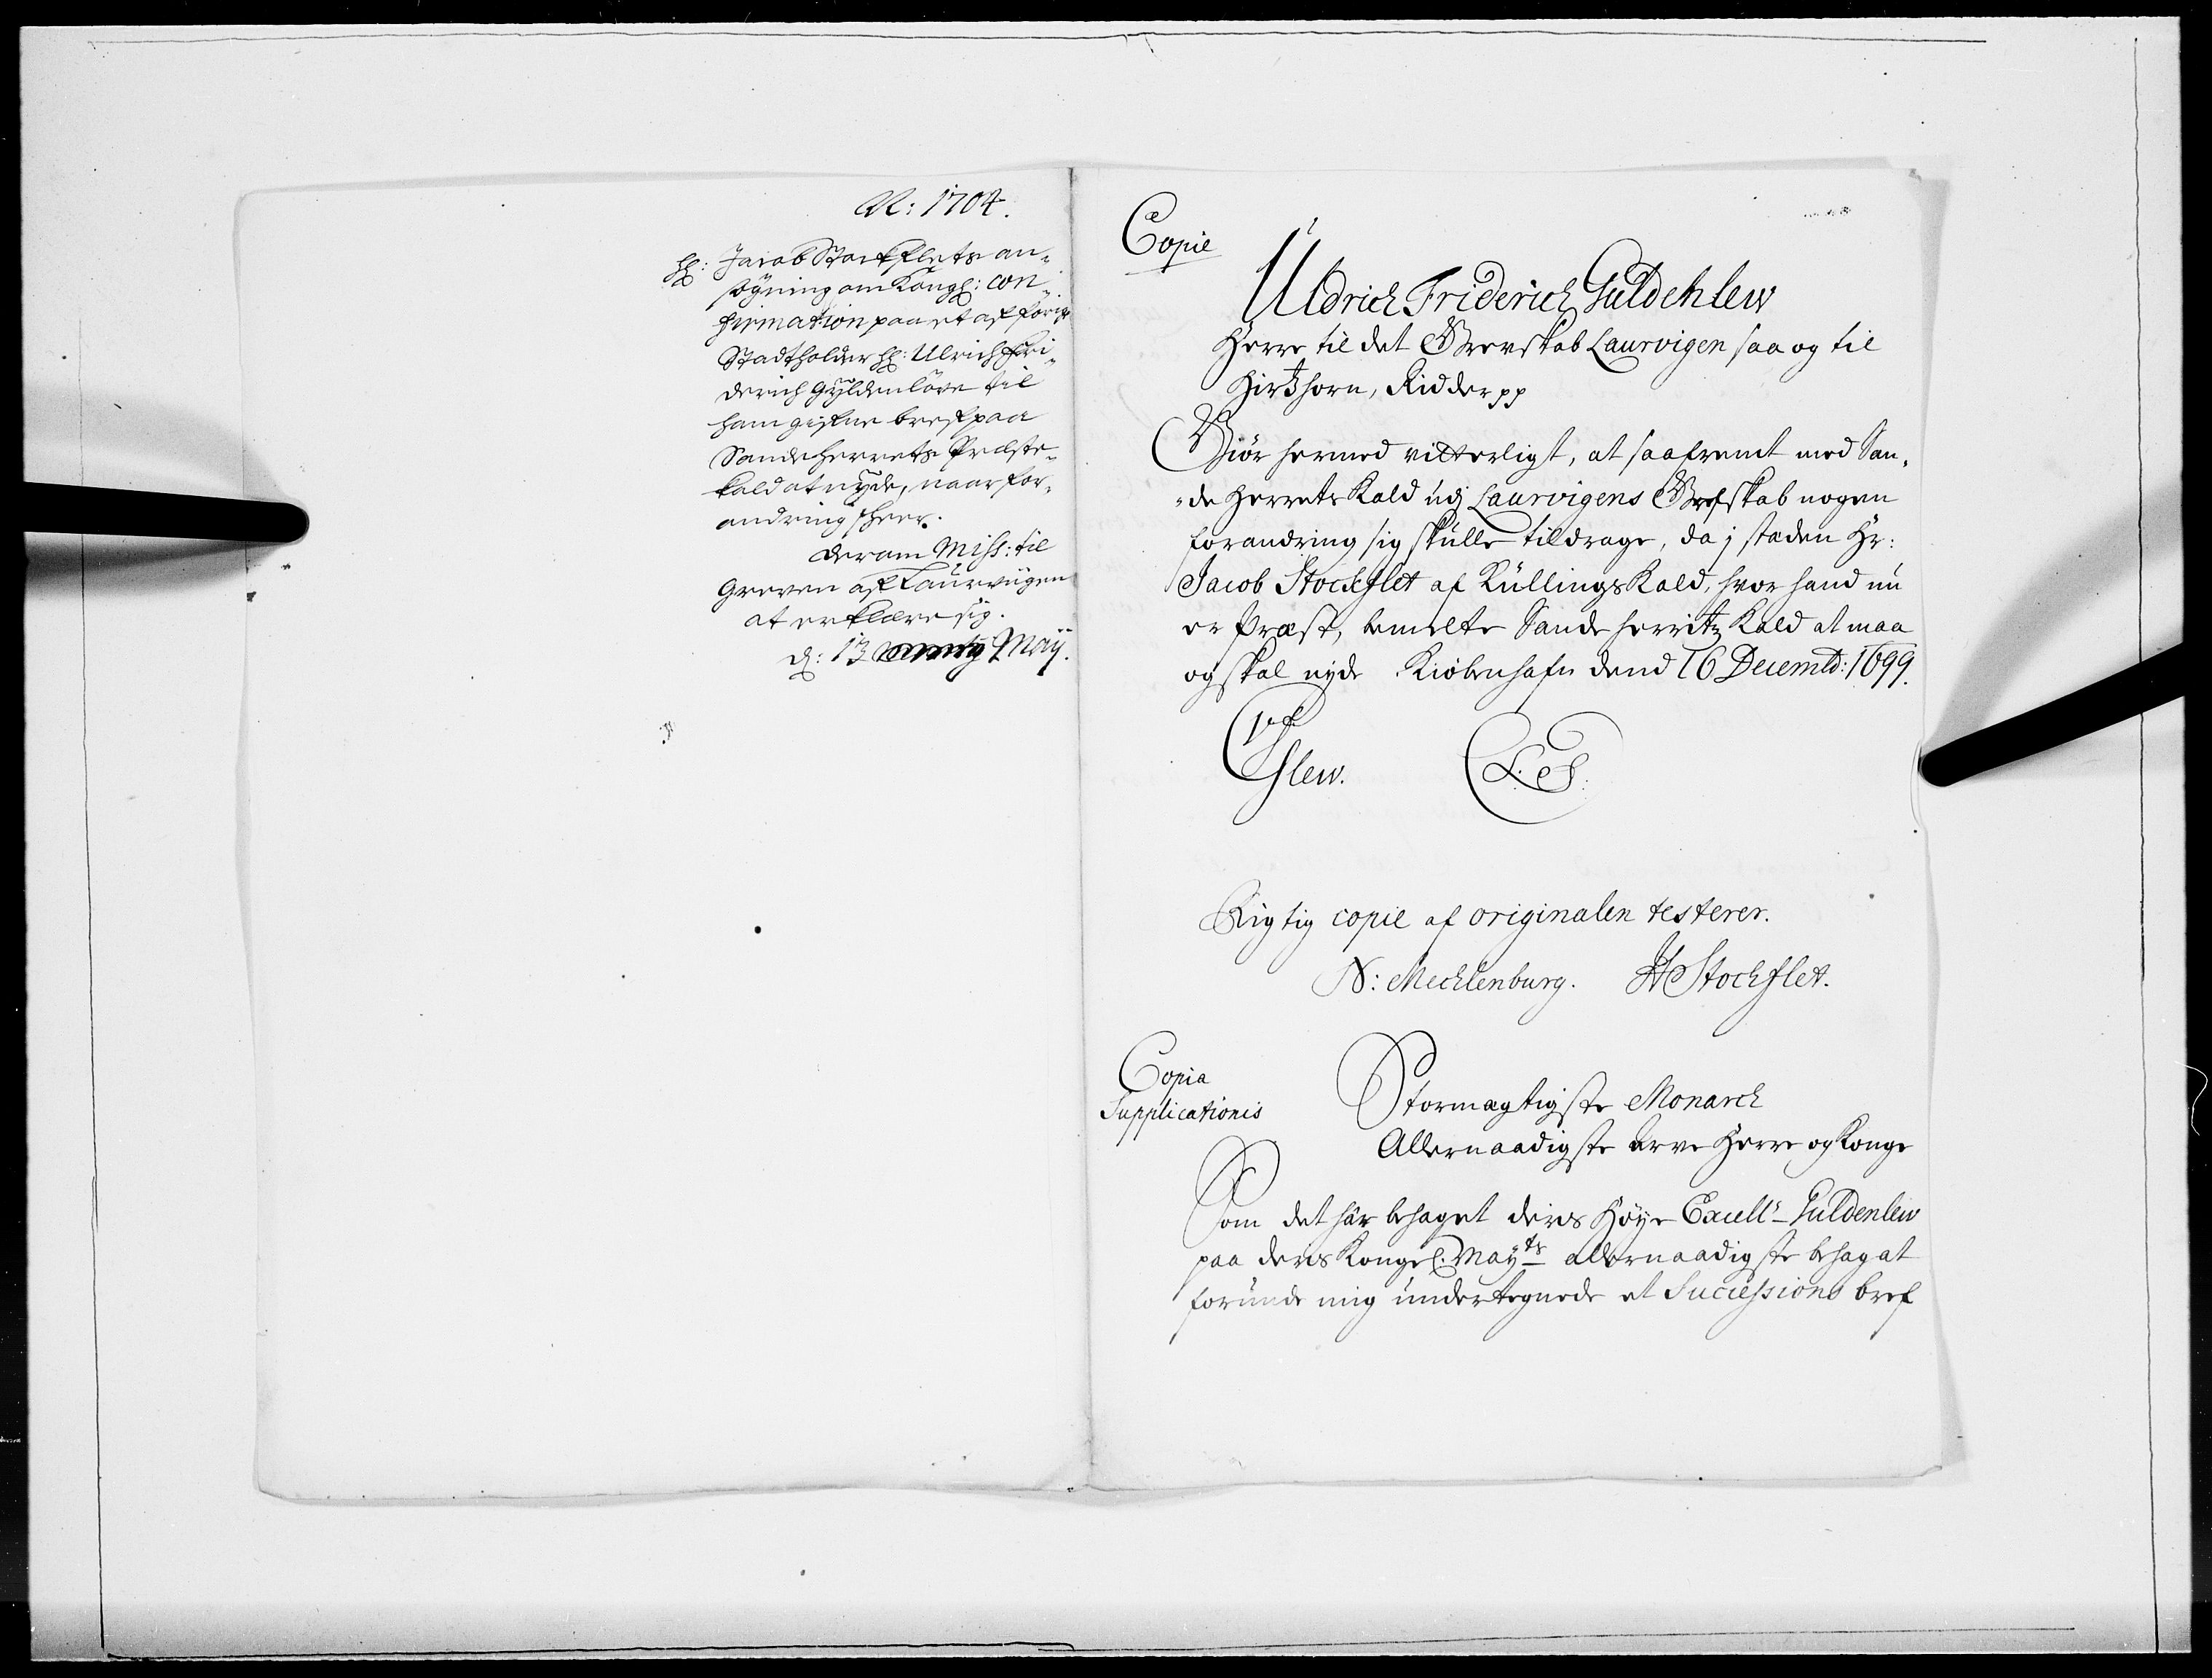 A: 1704.
Hr: Jacob Stockflets an„
søgning om Kongl: con„
firmation paa et af forige
Stadtholder Hr: Ulrich Fri„
derich Gyldenløve til
ham gifne bref paa
Sandeherrets Præste„
kald at nyde, naar for„
andring skeer.
derom Miss: til
Greven af Laurvigen
at erklære sig.
d: 13 Maÿ.
Copie
Uldrich Friderich Guldenlew
Herre til det Grevskab Laurvigen saa og til
Hirtzhorn, Ridder pp
Giør hermed vitterligt, at saafremt med San„
„de Herrets Kald udj Laurvigens Grefskab nogen
forandring sig skulle tildrage, da j staden Hr:
Jacob Stockflet af Küllings Kald, hvor hand nu
er Præst, bemelte Sande herritz Kald at maa
og skal nyde. Kiøbenhafn dend 16 Decembr: 1699.
VF
Glew. L: S:
Rigtig copie af originalen testerer.
N: Mecklenburg. H Stockflet.
Copia
Supplicationis
Stormægtigste Monarch
Allernaadigste Arve Herre og Konge
Som det har behaget deris Høye Excellc Guldenlew
paa deris Kongel: Mayts allernaadigste behag at
forunde mig undertegnede et Successions bref